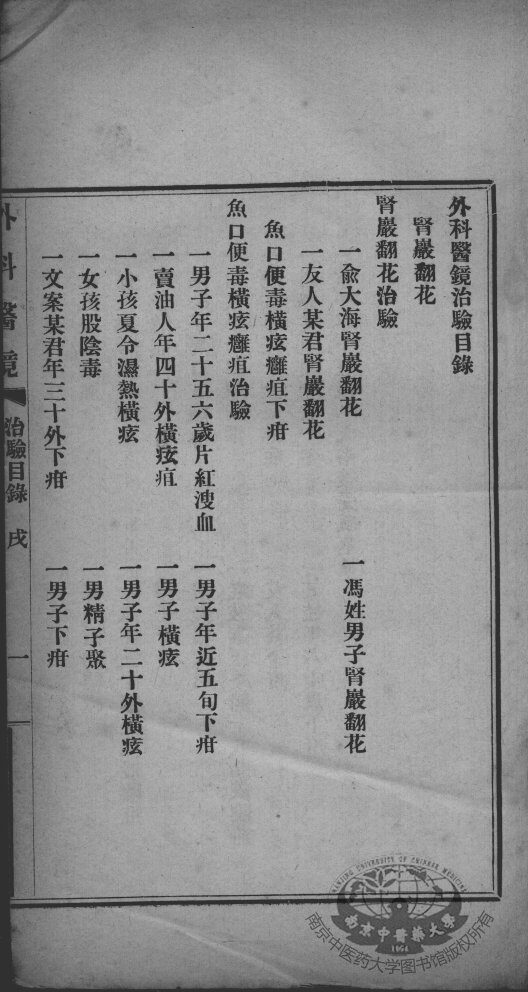 外科醫鏡治驗目錄
腎巖翻花
腎巖翻花治驗
一俞大海腎巖翻花
一馮姓男子腎巖翻花
一友人某君腎巖翻花
魚口便毒橫痃癰疽下疳
魚口便毒橫痃癰疽治驗
一男子年二十五六歲片紅溲血
一男子年近五旬下疳
一賣油人年四十外橫痃疽
一男子橫痃
一小孩夏令濕熱橫痃
一男子年二十外橫痃
一女孩股陰毒
一男精子聚
一文案某君年三十外下疳
一男子下疳
外科醫鏡 治驗目錄 戌 一
NANJING UNIVERSITY OF CHINESE MEDICINE
南京中醫藥大學
1954
南京中医药大学图书馆版权所有